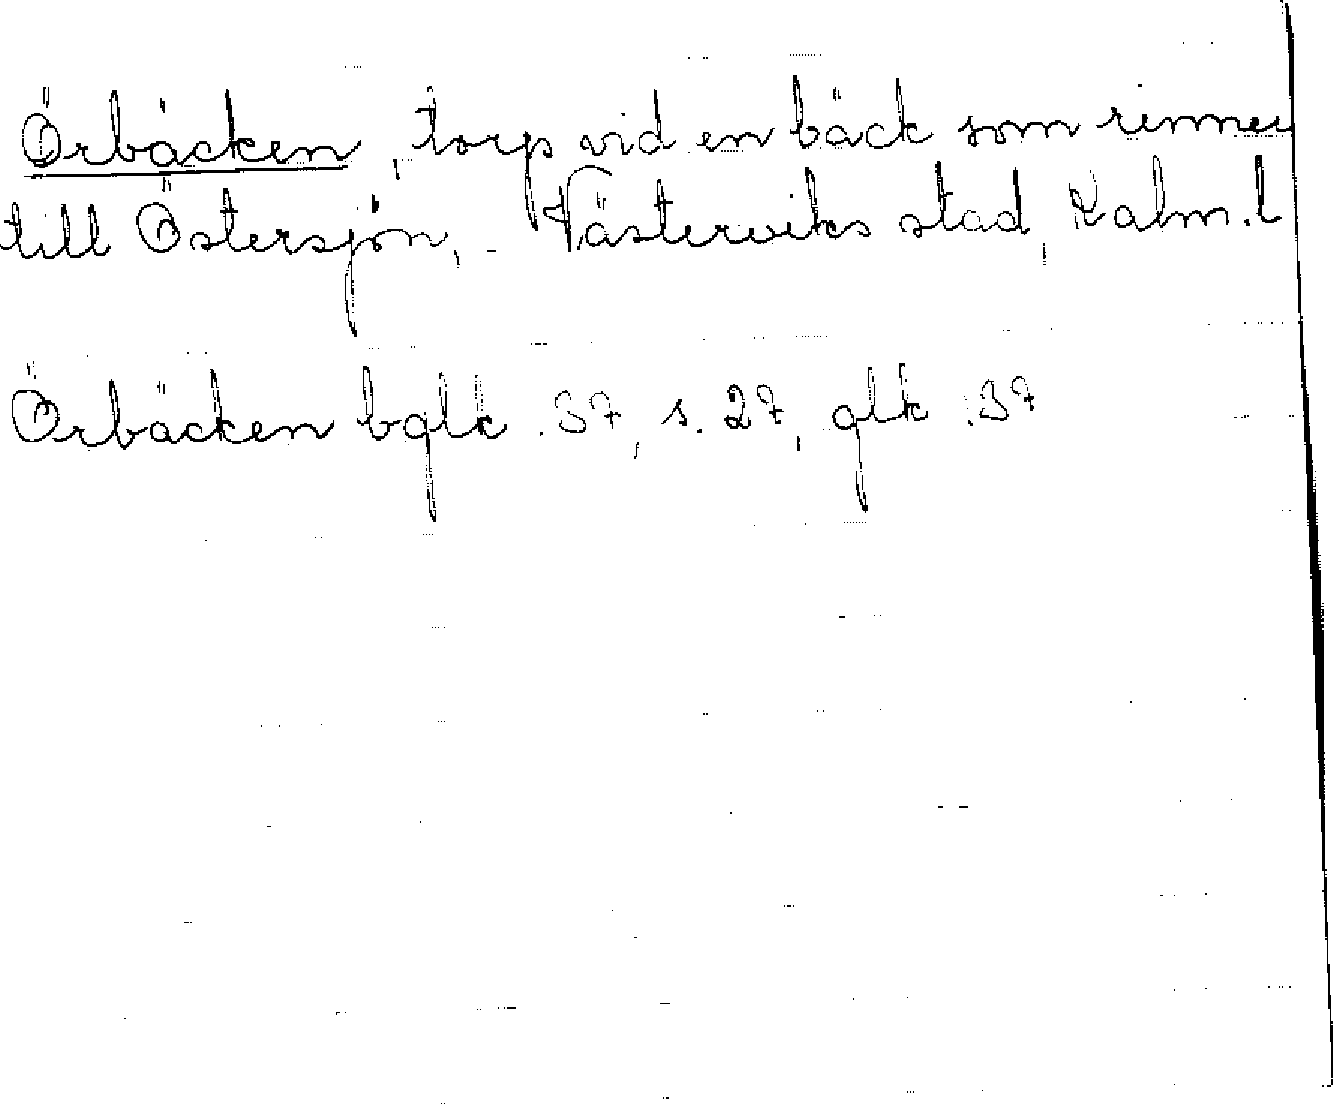 Örbäcken, torp vid en bäck som rinner
till Östersjön, - Västerviks stad, Kalm. l
Örbäcken bglk. 37, s. 27, glk. 37